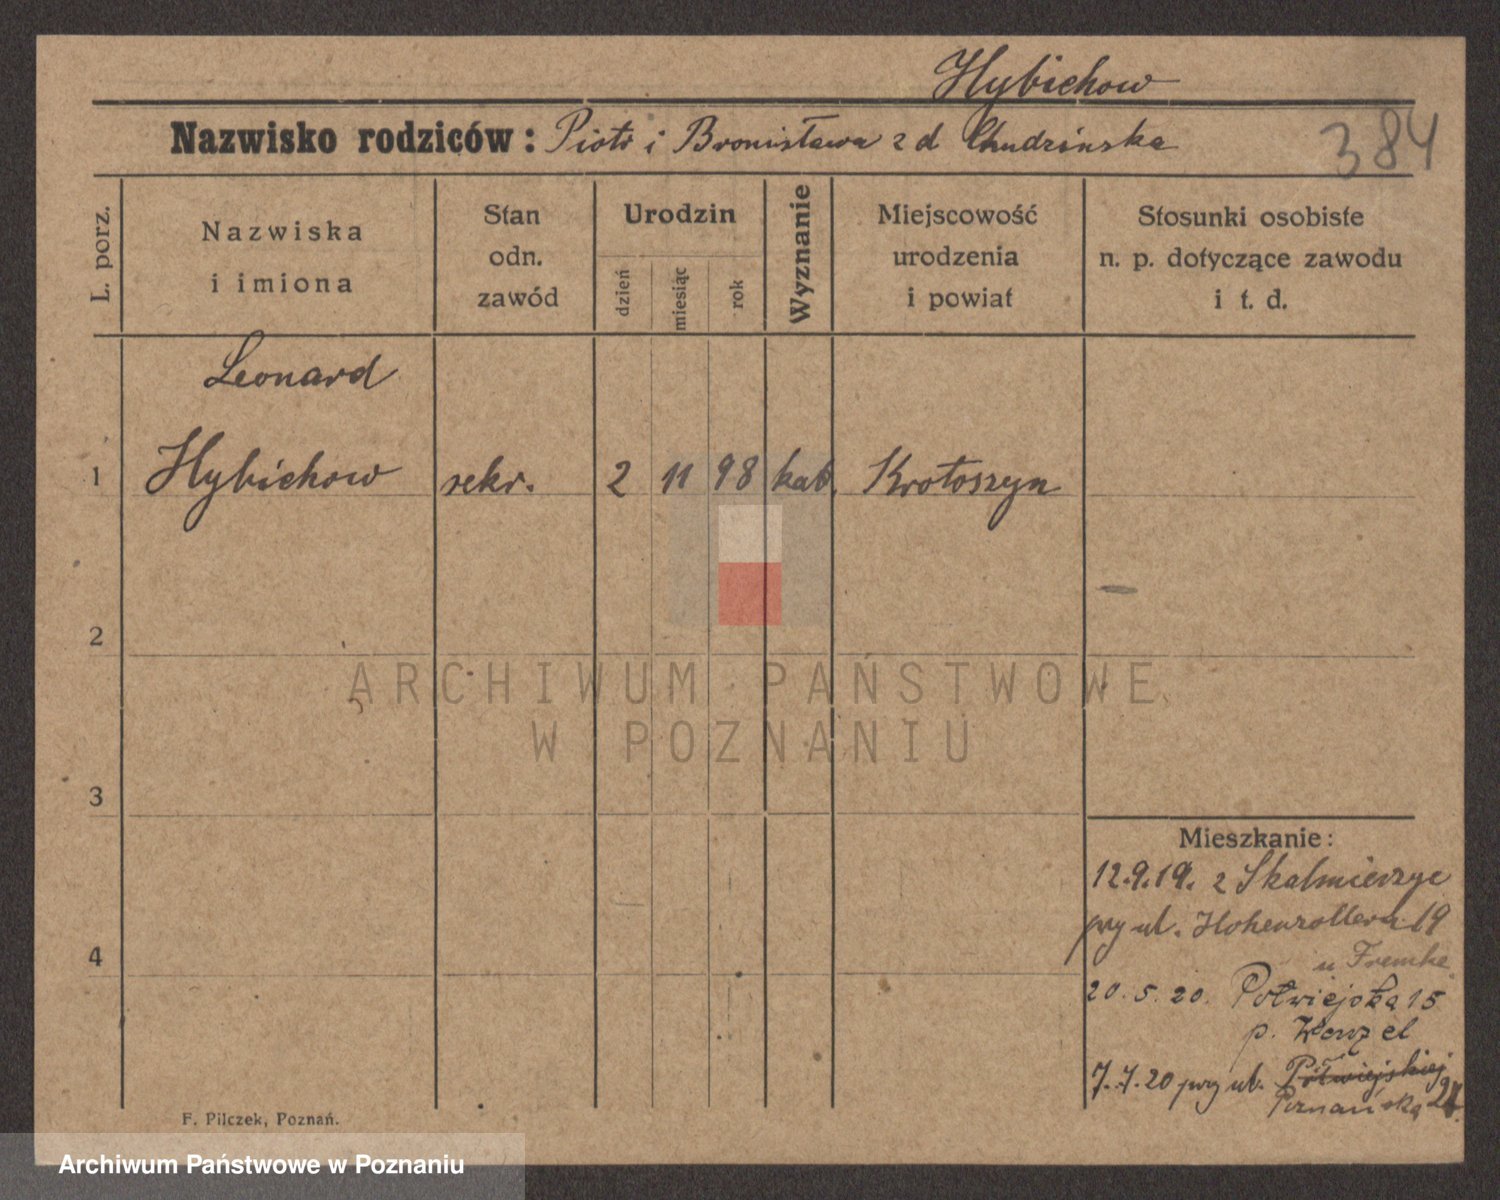 Hybichow
Nazwisko rodziców: Piotr i Bronisława z d Chudzinska
384
L. porz.
Nazwiska
i imiona
Stan
odn.
zawód
Urodzin
dzień
miesiąc
rok
Wyznanie
Miejscowość
urodzenia
i powiat
Stosunki osobiste
n. p. dotyczące zawodu
i t. d.
Leonard
1 Hybichow sekr. 2 11 98 kat. Krotoszyn
2
3
4
Mieszkanie:
12.9.19. z Skalmierzyc
przy ul. Hohenzollern 19
u Fremke
20.5.20. Półwiejska 15
p. Wenzel
7.7.20 przy ul. Półwiejskiej
Poznańska
F. Pilczek, Poznań.
ARCHIWUM PAŃSTWOWE
W POZNANIU
Archiwum Państwowe w Poznaniu